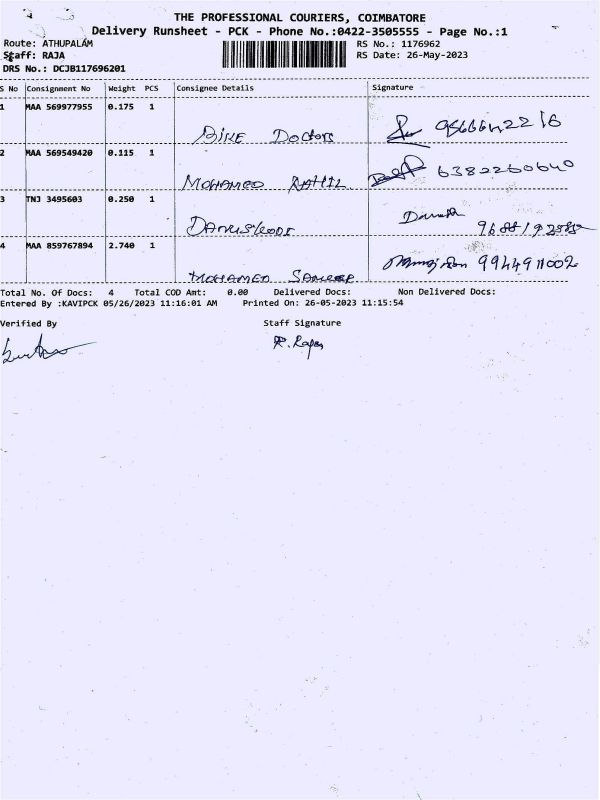 THE PROFESSIONAL COURIERS, COIMBATORE
Delivery Runsheet - PCK - Phone No.:0422-3505555 - Page No.:1
Route: ATHUPALAM RS No.: 1176962
Staff: RAJA RS Date: 26-May-2023
DRS No.: DCJB117696201
S No Consignment No Weight PCS Consignee Details Signature
1 MAA 569977955 0.175 1
BIKE DOCTORS
2 MAA 569549420 0.115 1 6382260640
MOHAMED RAHIL
3 TNJ 3495603 0.250 1
4 MAA 859767894 2.740 1 9944911002
MOHAMED SAMEER
Total No. Of Docs: 4 Total COD Amt: 0.00 Delivered Docs: Non Delivered Docs:
Entered By :KAVIPCK 05/26/2023 11:16:01 AM Printed On: 26-05-2023 11:15:54
Verified By Staff Signature